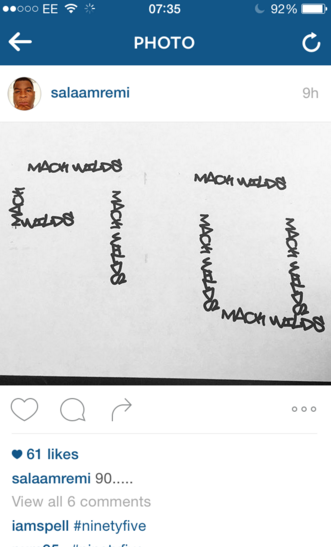 EE 07:35 92%
PHOTO
salaamremi 9h
MACK WILDS
MACK WILDS
MACK WILDS
MACK WILDS
MACK WILDS
MACK WILDS
MACK WILDS
MACK WILDS
61 likes
salaamremi 90.....
View all 6 comments
iamspell #ninetyfive